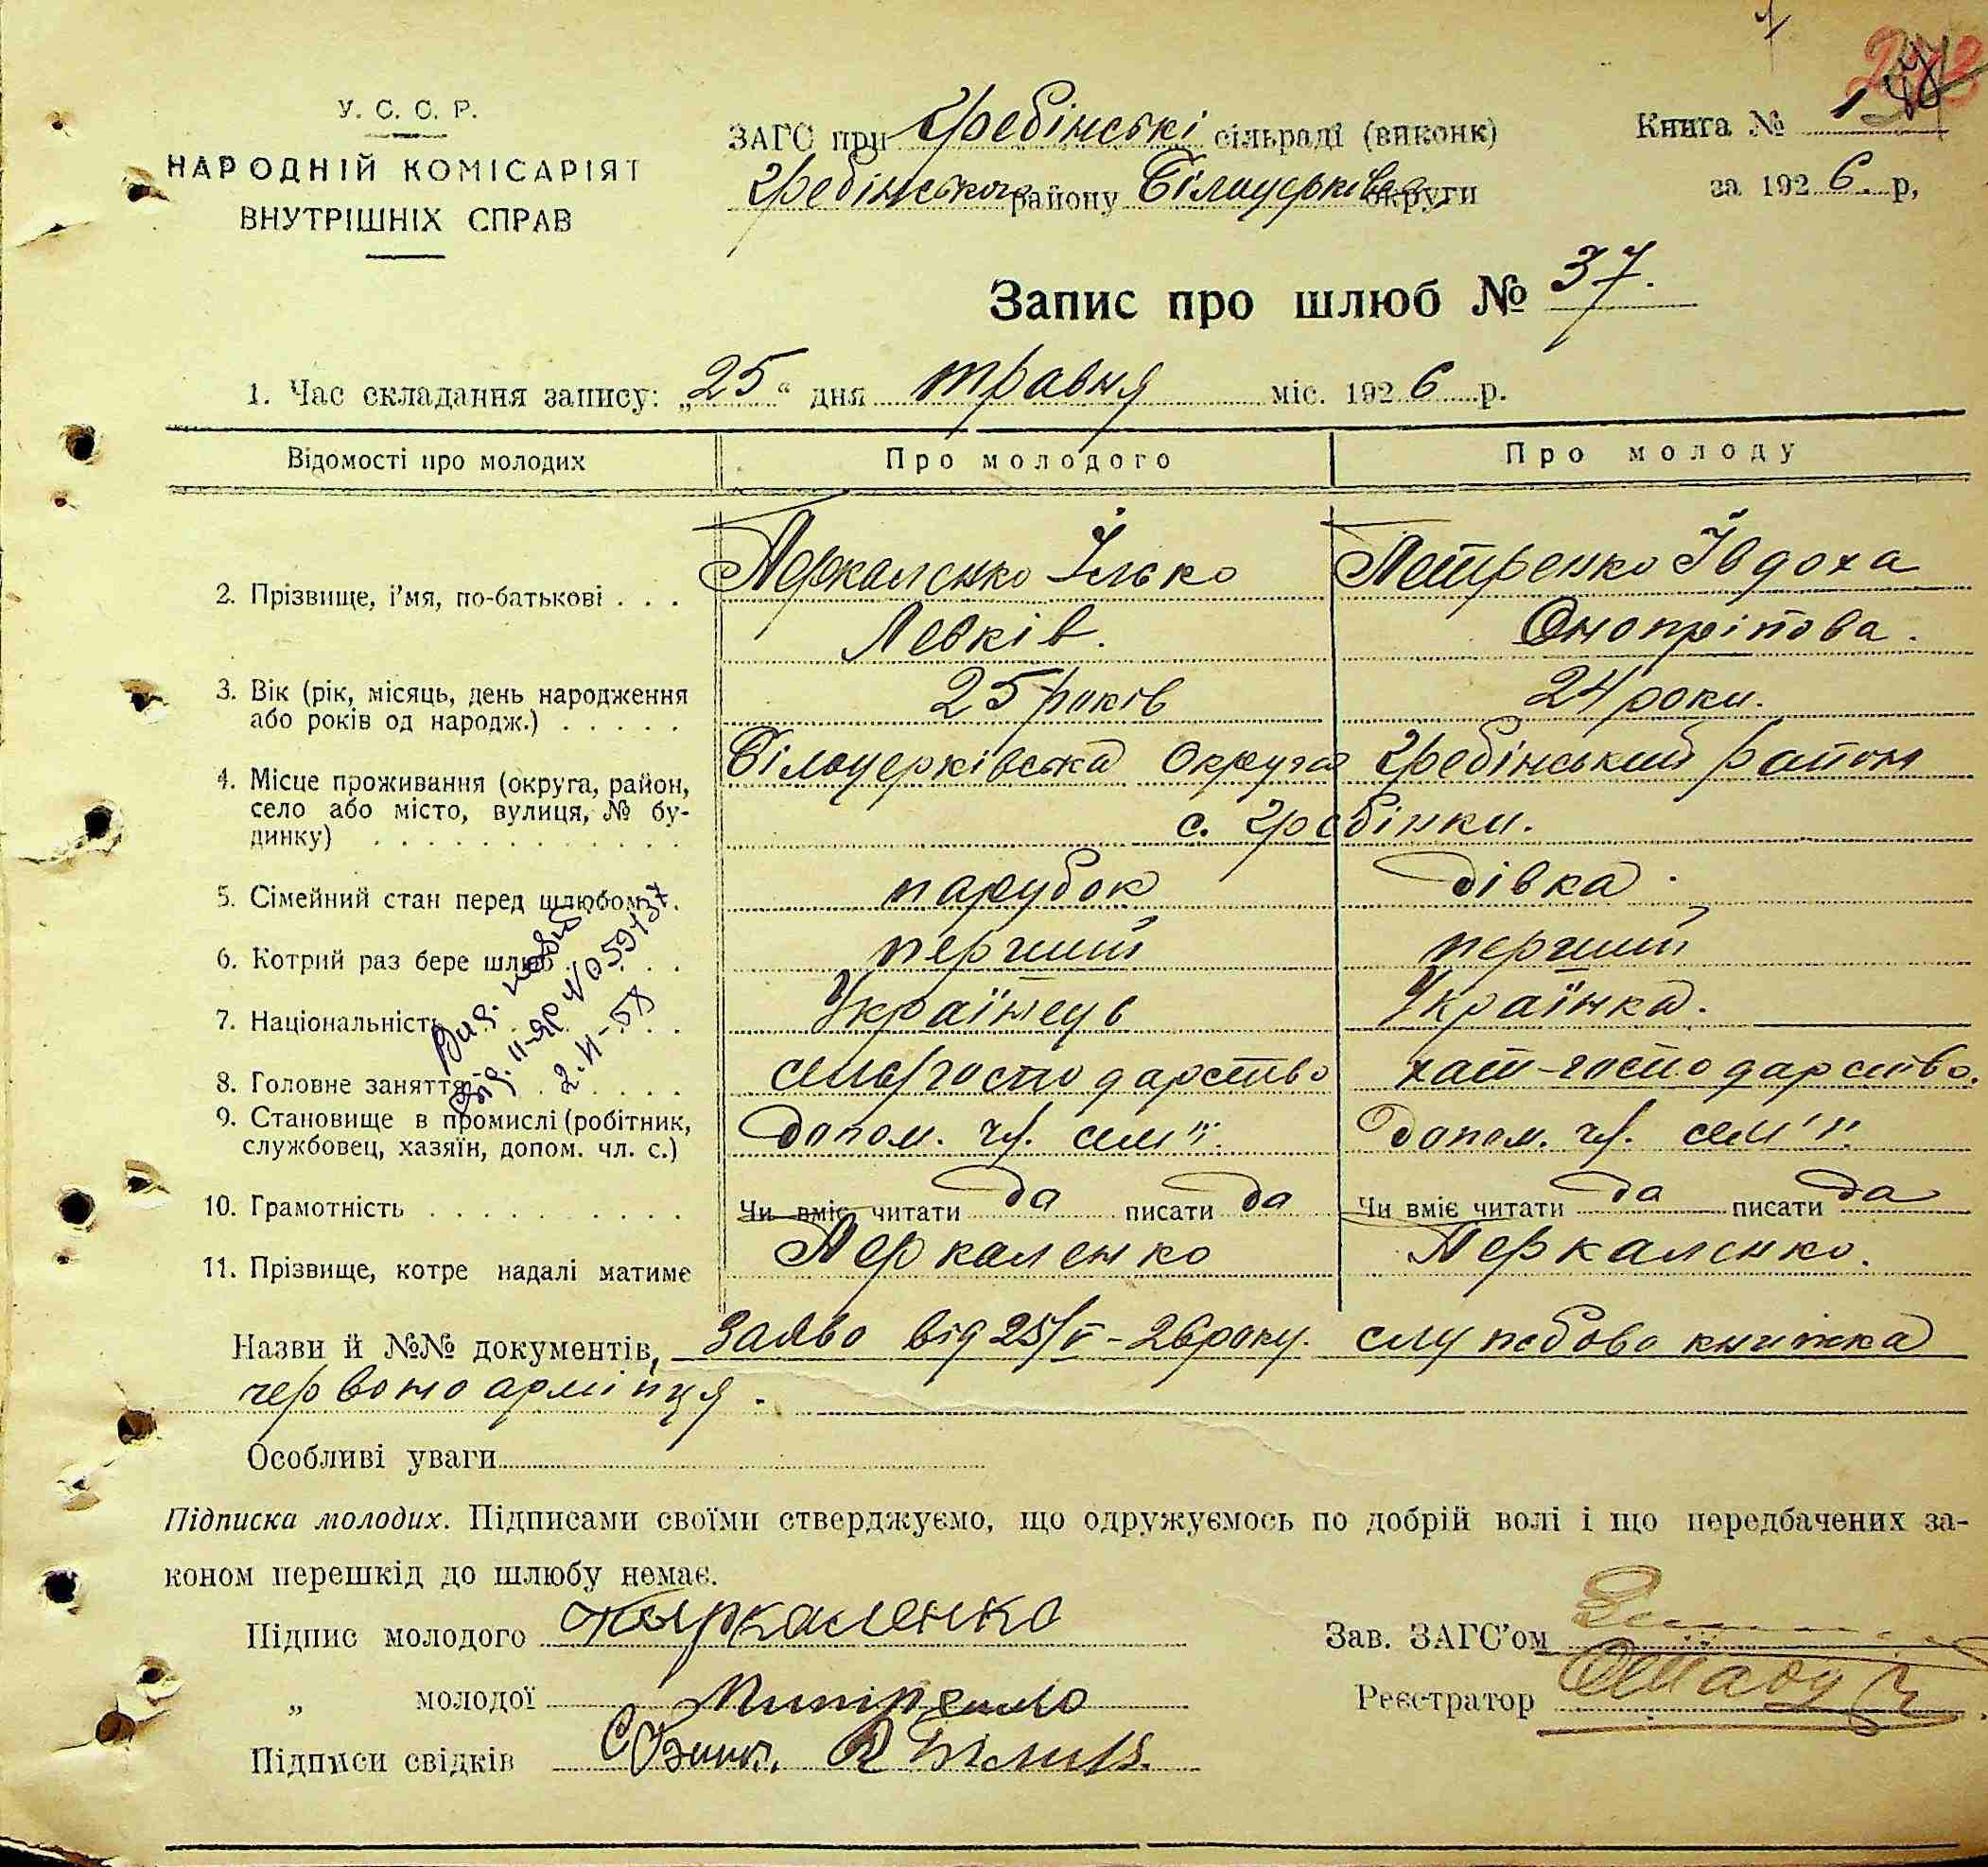 У. С. С. Р.
НАРОДНІЙ КОМІСАРІЯТ
ВНУТРІШНІХ СПРАВ
ЗАГС при Гребінські сільраді (виконк)
Гребінського району Білоцерківсько округи
Книга № 1
за 1926. р,
Запис про шлюб № 37.
1. Час складання запису: „25“ дня травня міс. 1926 р.
Відомості про молодих Про молодого Про молоду
2. Прізвище, і'мя, по-батькові . . . Перкаленко Ілько Петренко Ївдоха
Левків. Онопріїова.
3. Вік (рік, місяць, день народження
або років од народж.) . . . . . 25 років 24 роки.
4. Місце проживання (округа, район,
село або місто, вулиця, № бу-
динку) . . . . . . . . . . . .
Білоцерківська Округа Гребінський район
с. Гребінки.
5. Сімейний стан перед шлюбом . парубок дівка.
6. Котрий раз бере шлюб . . . перший перший
7. Національність . . . Українець Українка.
8. Головне заняття . . . . . сільгосподарство хат-господарство.
9. Становище в промислі (робітник,
службовец, хазяїн, допом. чл. с.) допом. чл. сем'ї. допом. чл. сем'ї.
10. Грамотність . . . . . . . . . . Чи вміє читати да писати да Чи вміє читати да писати да
11. Прізвище, котре надалі матиме Перкаленко Перкаленко.
Вид.
2.VI-58
Назви й №№ документів, Заява від 25/V-26 року. службова книжка
червоноармійця.
Особливі уваги
Підписка молодих. Підписами своїми стверджуємо, що одружуємось по добрій волі і що передбачених за-
коном перешкід до шлюбу немає.
Підпис молодого Пыркаленко
Зав. ЗАГС'ом
„ молодої
Реєстратор
Підписи свідків